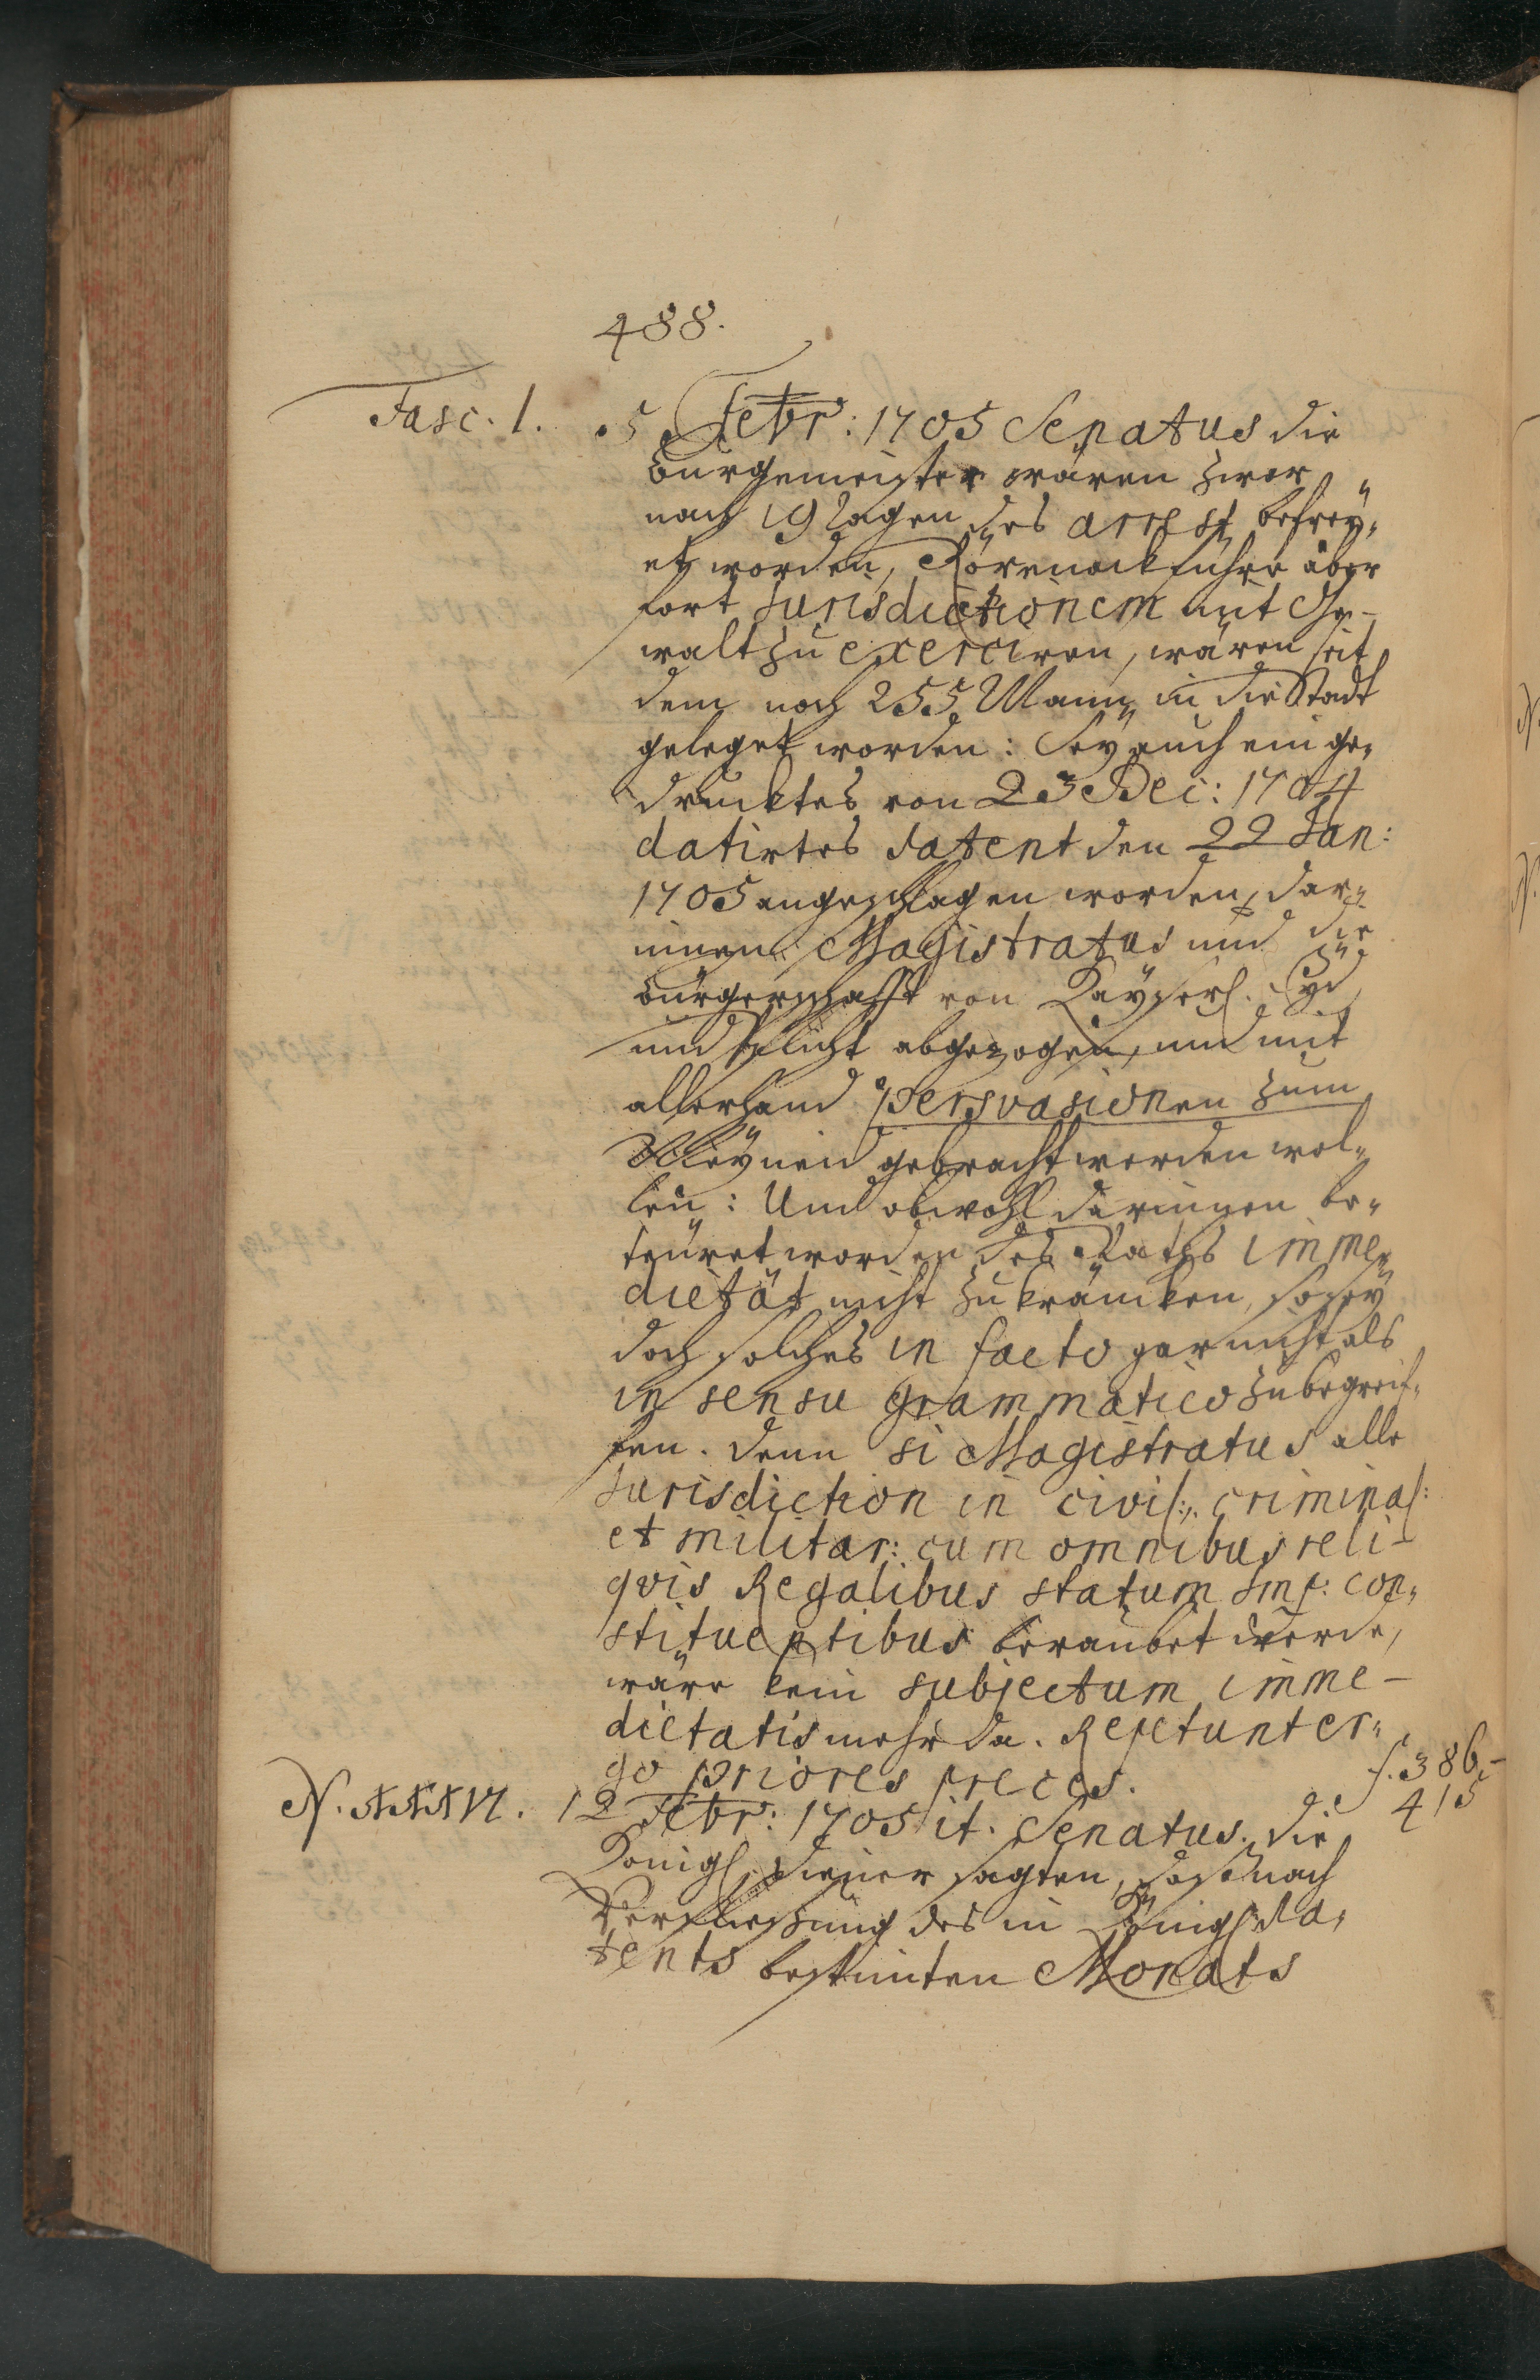 488.
Fasc. 1. 5 Febr: 1705 Senatus die
Burgemeister wären zwar
nach 19 tagen des arrest befrey„
et worden, Rörenock führe aber
fort Jurisdictionem mit Ge-
walt zu exerciren, wären seit
dem noch 255 Mann in die Stadt
geleget worden: Sey auch ein ge„
drucktes von 23 Dec: 1704
datirtes Patent den 22 Jan:
1705 angeschlagen worden, dar„
innen Magistratus und die
Bürgerschafft von Kayserl. Eyd
und Pflicht abgezogen, und mit
allerhand persvasionen zum
Meyneid gebracht werden wol„
len: Und obwohl darinnen be„
teuret worden des Raths imme„
dietät nicht zu kräncken, so sey
doch solches in facto gar nicht als
in sensu grammatico zu begreif„
fen. Denn si Magistratus alle
Jurisdiction in civil:, criminal:
et militar: cum omnibus reli-
qvis Regalibus statum Imp: con„
stituentibus beraubet werde,
wäre kein subjectum imme-
dietatis mehr da. Repetunt er„
go priores preces.
N. XXXVI. 12 Febr: 1705 it. Senatus. die f. 386-
415
Königl. Diener sagten, daß nach
Verfliessung des in Königl. Pa„
tents bestimten Monats